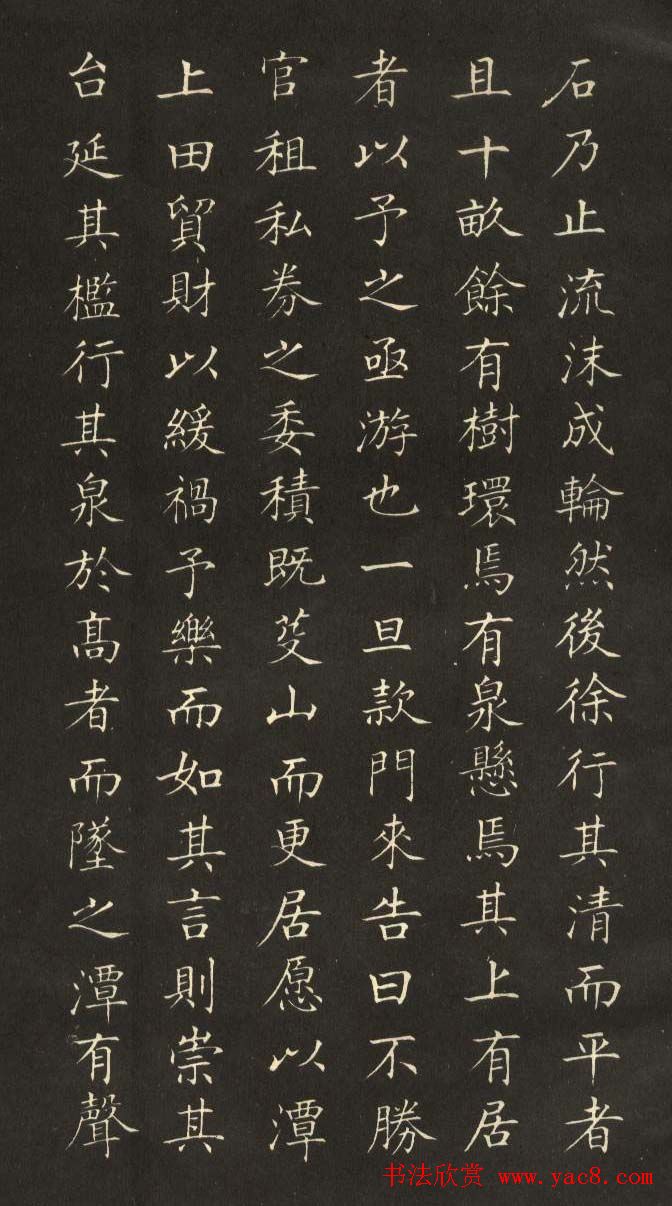 石乃止流沫成輪然後徐行其清而平者
且十畝餘有樹環焉有泉懸焉其上有居
者以予之亟游也一旦款門來告曰不勝
官租私券之委積既芟山而更居愿以潭
上田貿財以緩禍予樂而如其言則崇其
台延其檻行其泉於高者而墜之潭有聲
书法欣赏 www.yac8.com